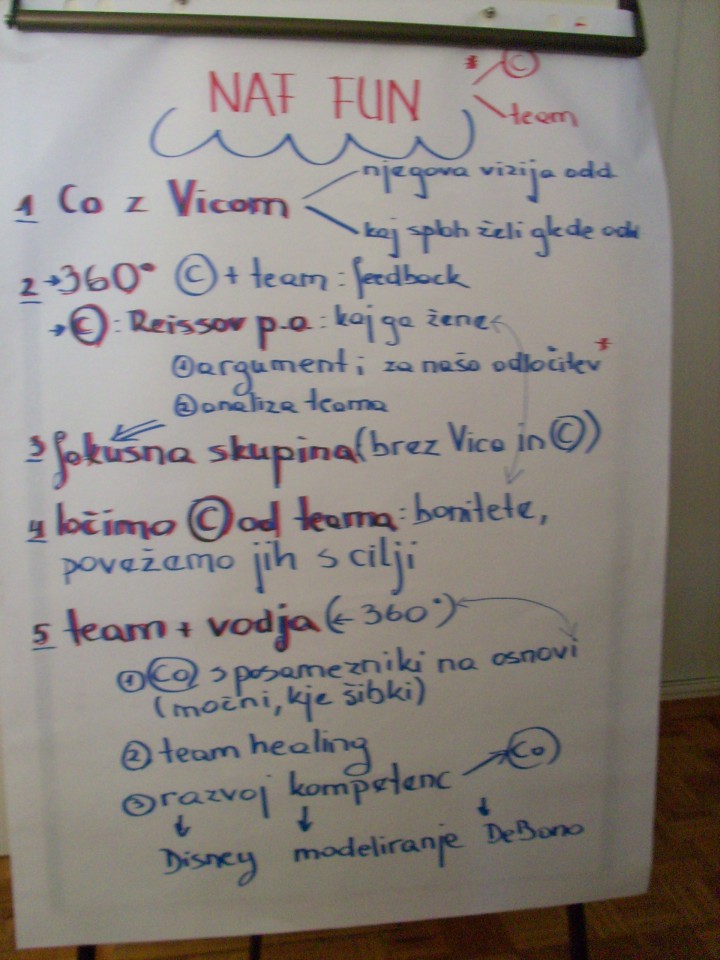 * Ⓒ
NAF FUN
team
1 Co z Vicom
njegova vizija odd.
kaj sploh želi glede odd
2 → 360° Ⓒ + team : feedback
→ Ⓒ : Reissov p.o : kaj ga žene
① argumenti za našo odločitev *
② analiza teama
3 fokusna skupina (brez Vica in Ⓒ)
4 ločimo Ⓒ od teama : bonitete,
povežemo jih s cilji
5 team + vodja (← 360°)
① Co s posamezniki na osnovi
(močni, kje šibki)
② team healing
③ razvoj kompetenc → Co
↓ ↓ ↓
Disney modeliranje DeBono